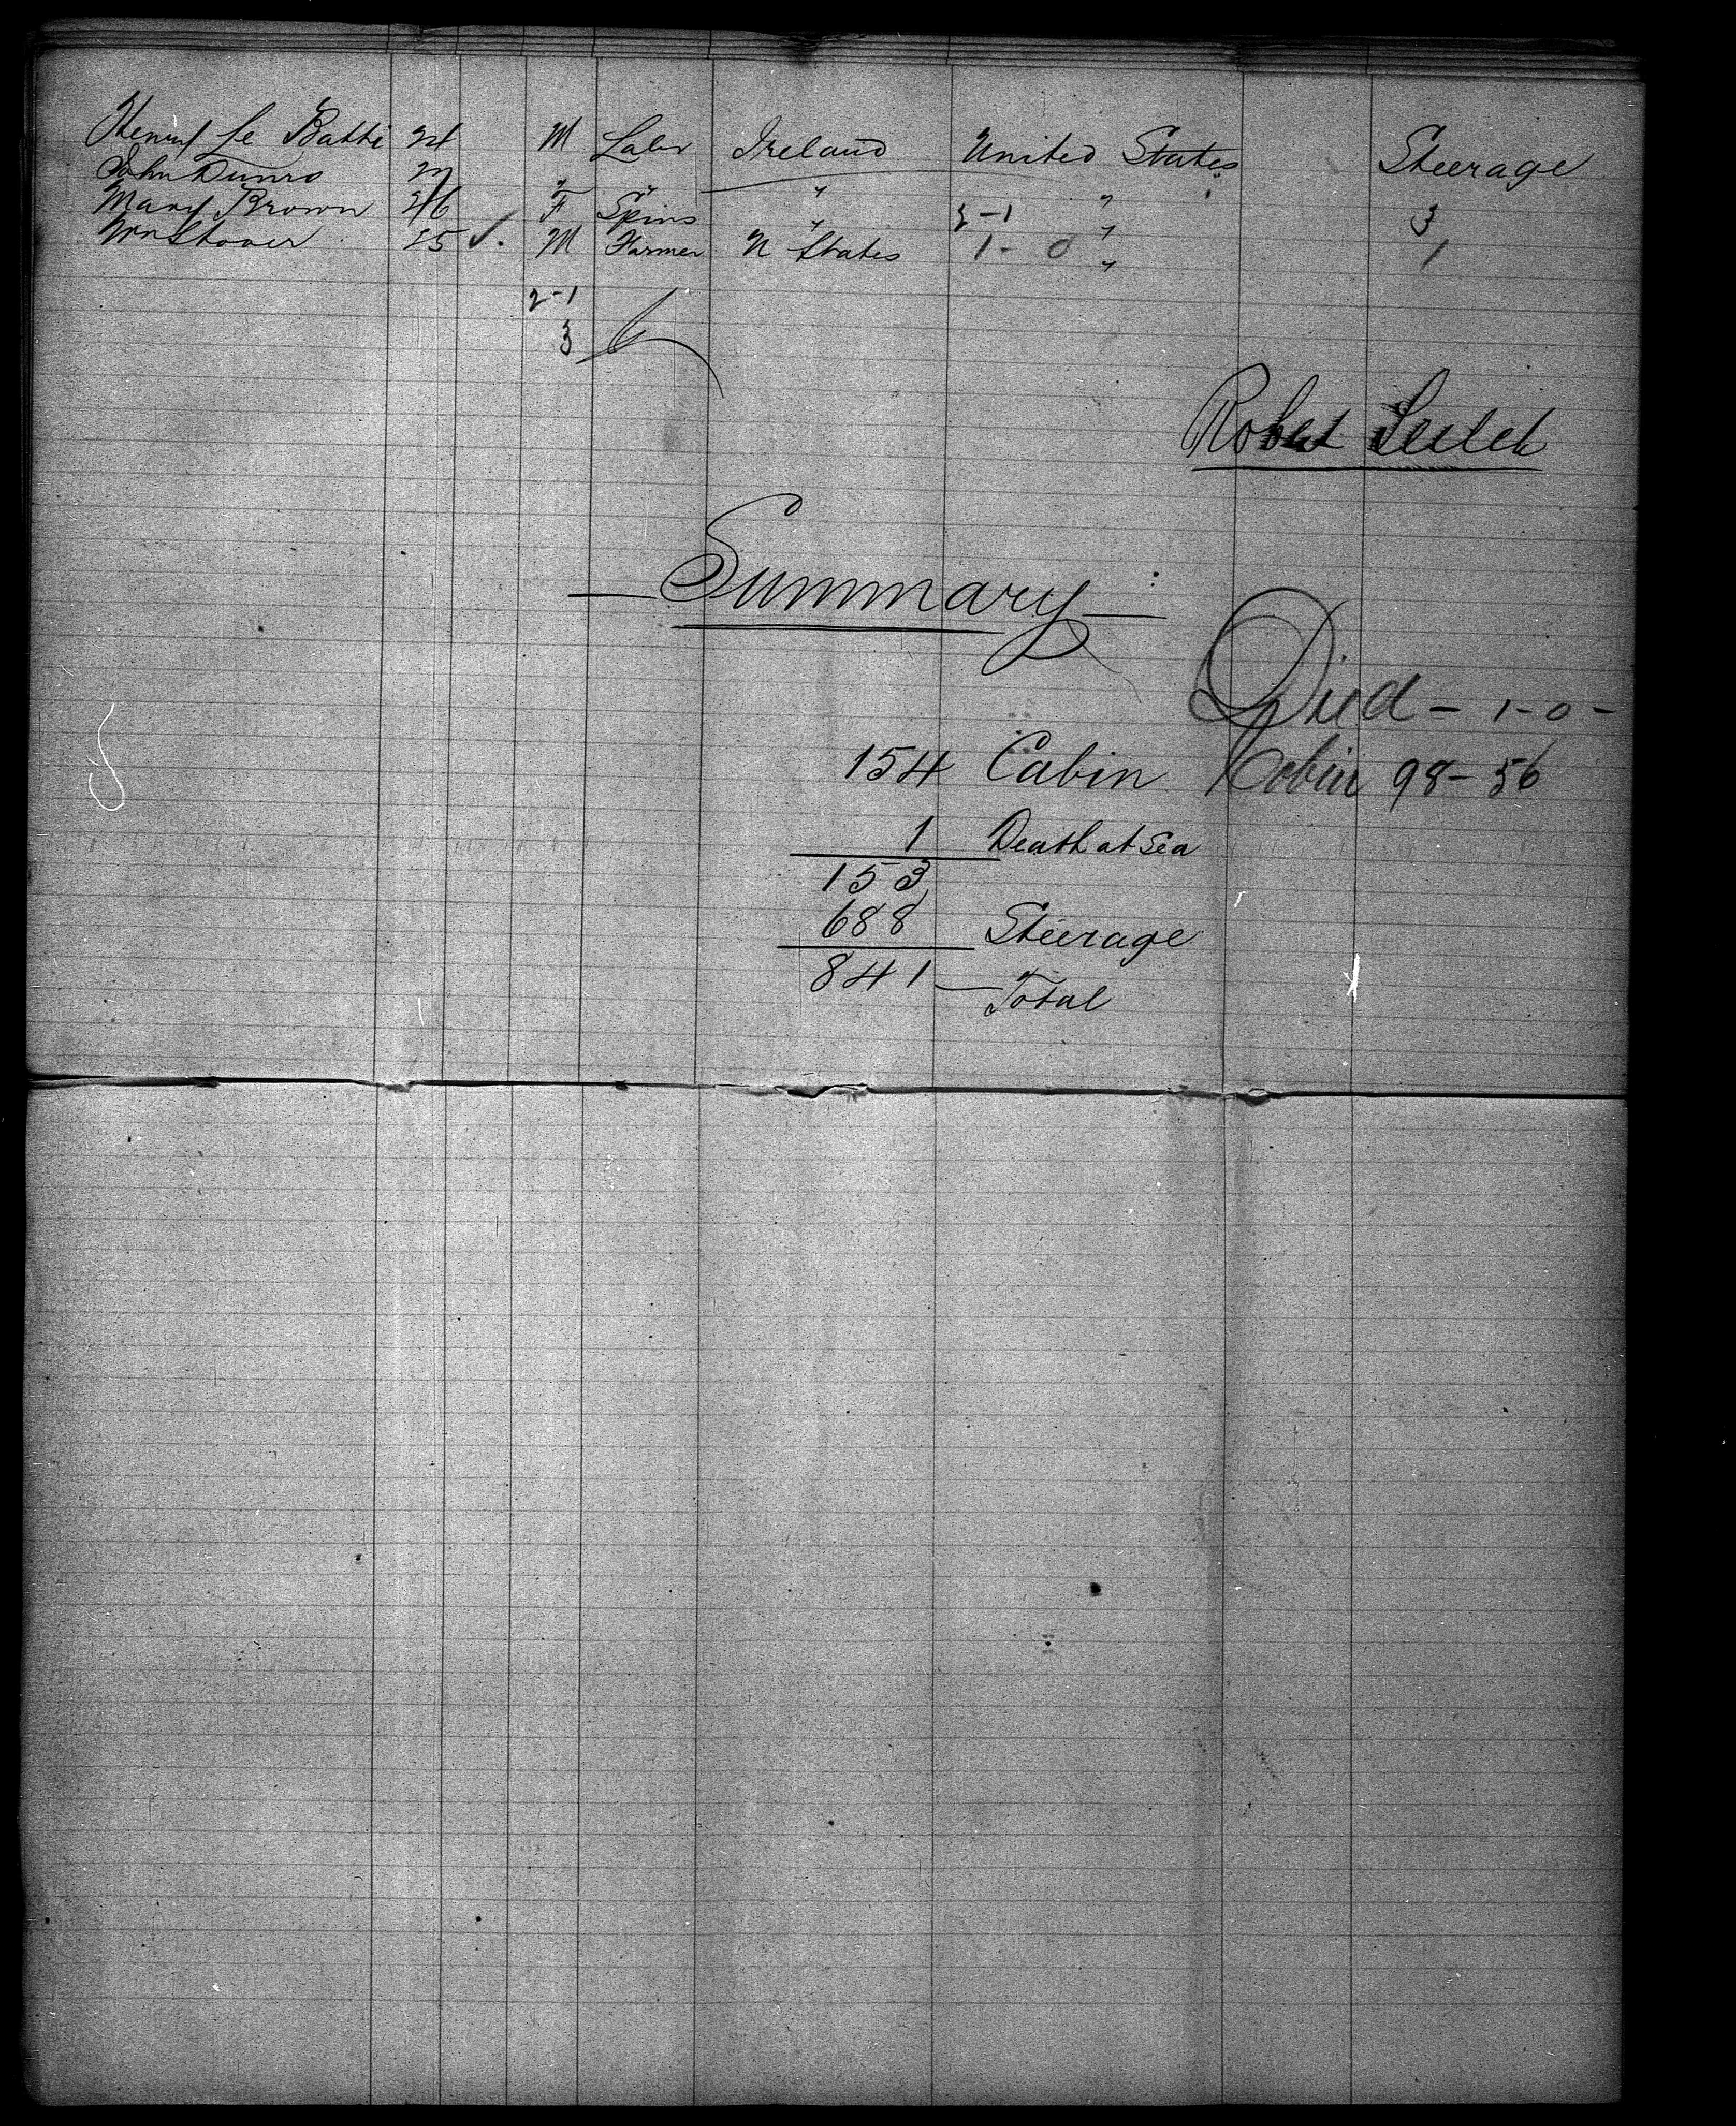 Henry Le Batti 24 M Labr Ireland United States Steerage
John Dunro " " " "
Mary Brown 26 F Spins " 2-1 " 3
Wm Stover 25 ✓. M Farmer U States 1-0 " 1
2-1
3
Robert Leitch
Summary
Died - 1-0-
154 Cabin Cabin 98-56
1 Death at Sea
153
688 Steerage
841 Total